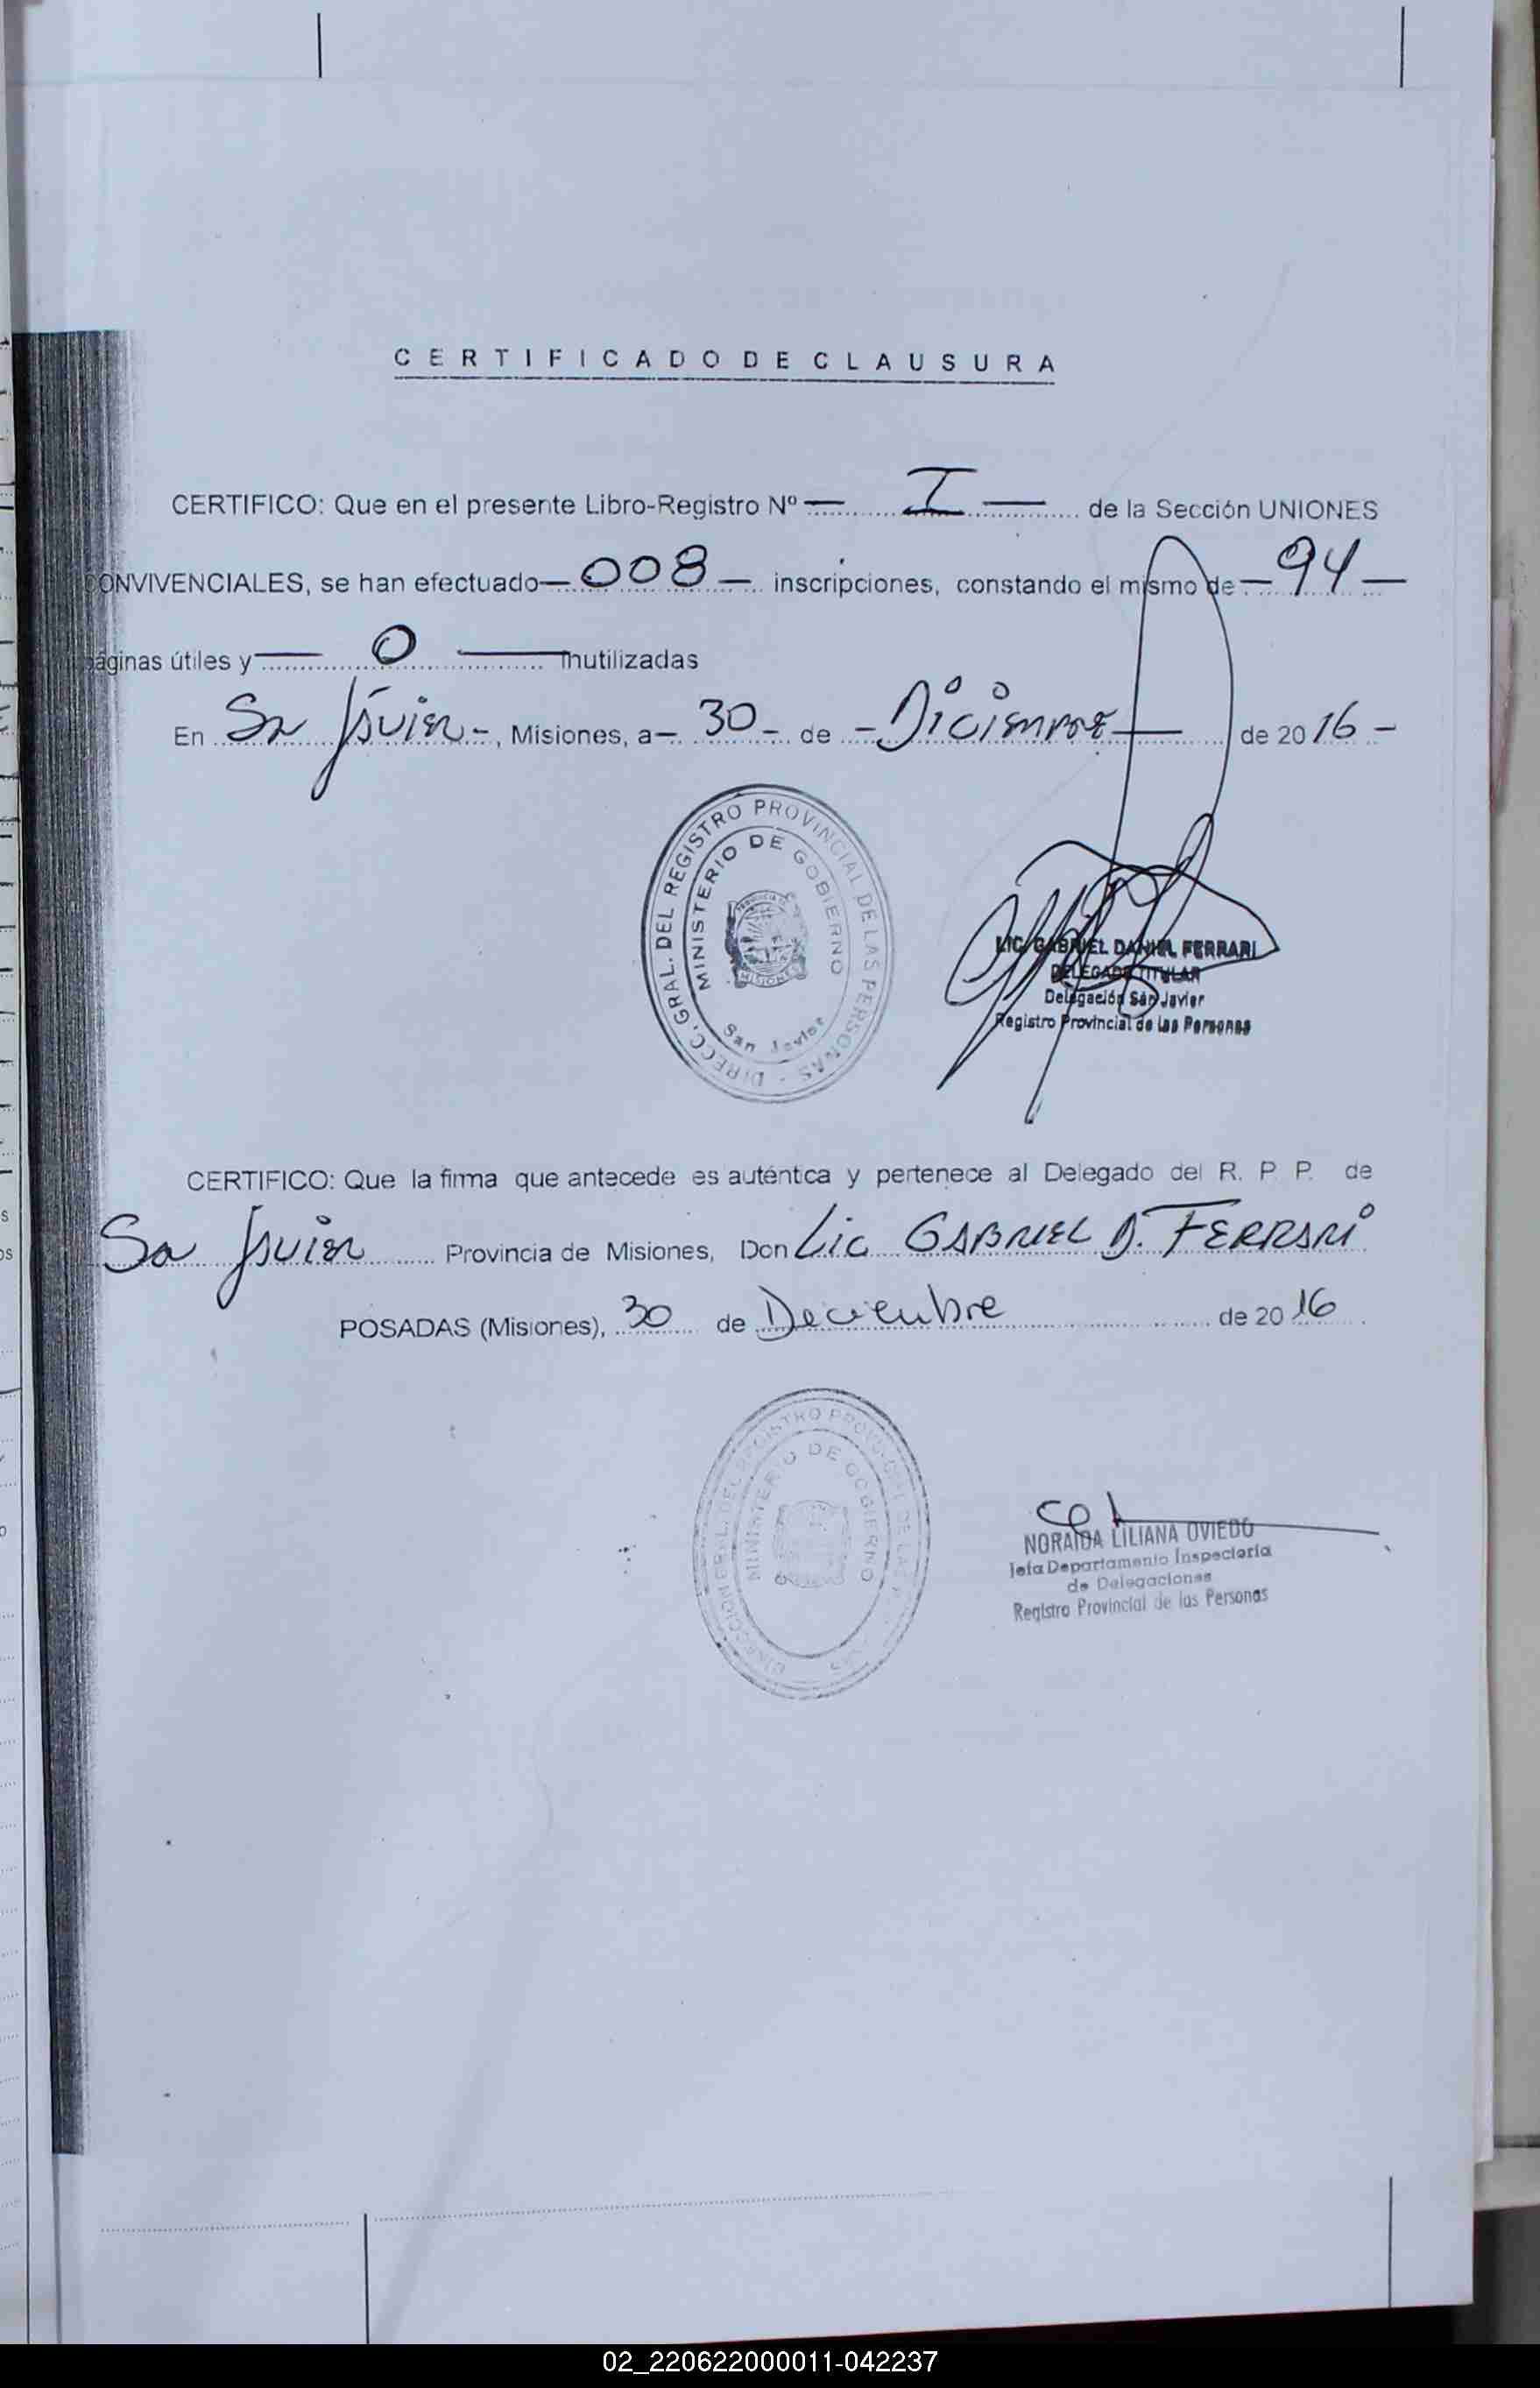 CERTIFICADO DE CLAUSURA
CERTIFICO: Que en el presente Libro-Registro Nº — I — de la Sección UNIONES
CONVIVENCIALES, se han efectuado — 008 — inscripciones, constando el mismo de — 94 —
páginas útiles y — 0 — Inutilizadas
En Sn Javier -, Misiones, a - 30 - de - Diciembre — de 2016 -
DIRECC. GRAL. DEL REGISTRO PROVINCIAL DE LAS PERSONAS -
MINISTERIO DE GOBIERNO
PROVINCIA DE
MISIONES
San Javier
LIC. GABRIEL DANIEL FERRARI
DELEGADO TITULAR
Delegación San Javier
Registro Provincial de las Personas
CERTIFICO: Que la firma que antecede es auténtica y pertenece al Delegado del R. P. P. de
Sn Javier Provincia de Misiones, Don Lic GABRIEL D. FERRARI
POSADAS (Misiones), 30 de Deciembre de 2016
DIRECCION GRAL. DEL REGISTRO PROVINCIAL DE LAS
MINISTERIO DE GOBIERNO
NORAIDA LILIANA OVIEDO
Jefa Departamento Inspectoria
de Delegaciones
Registro Provincial de las Personas
02_220622000011-042237